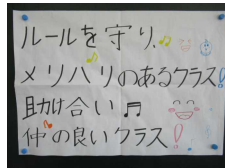 ルールを守り、
メリハリのあるクラス!
助け合い♬
仲の良いクラス!